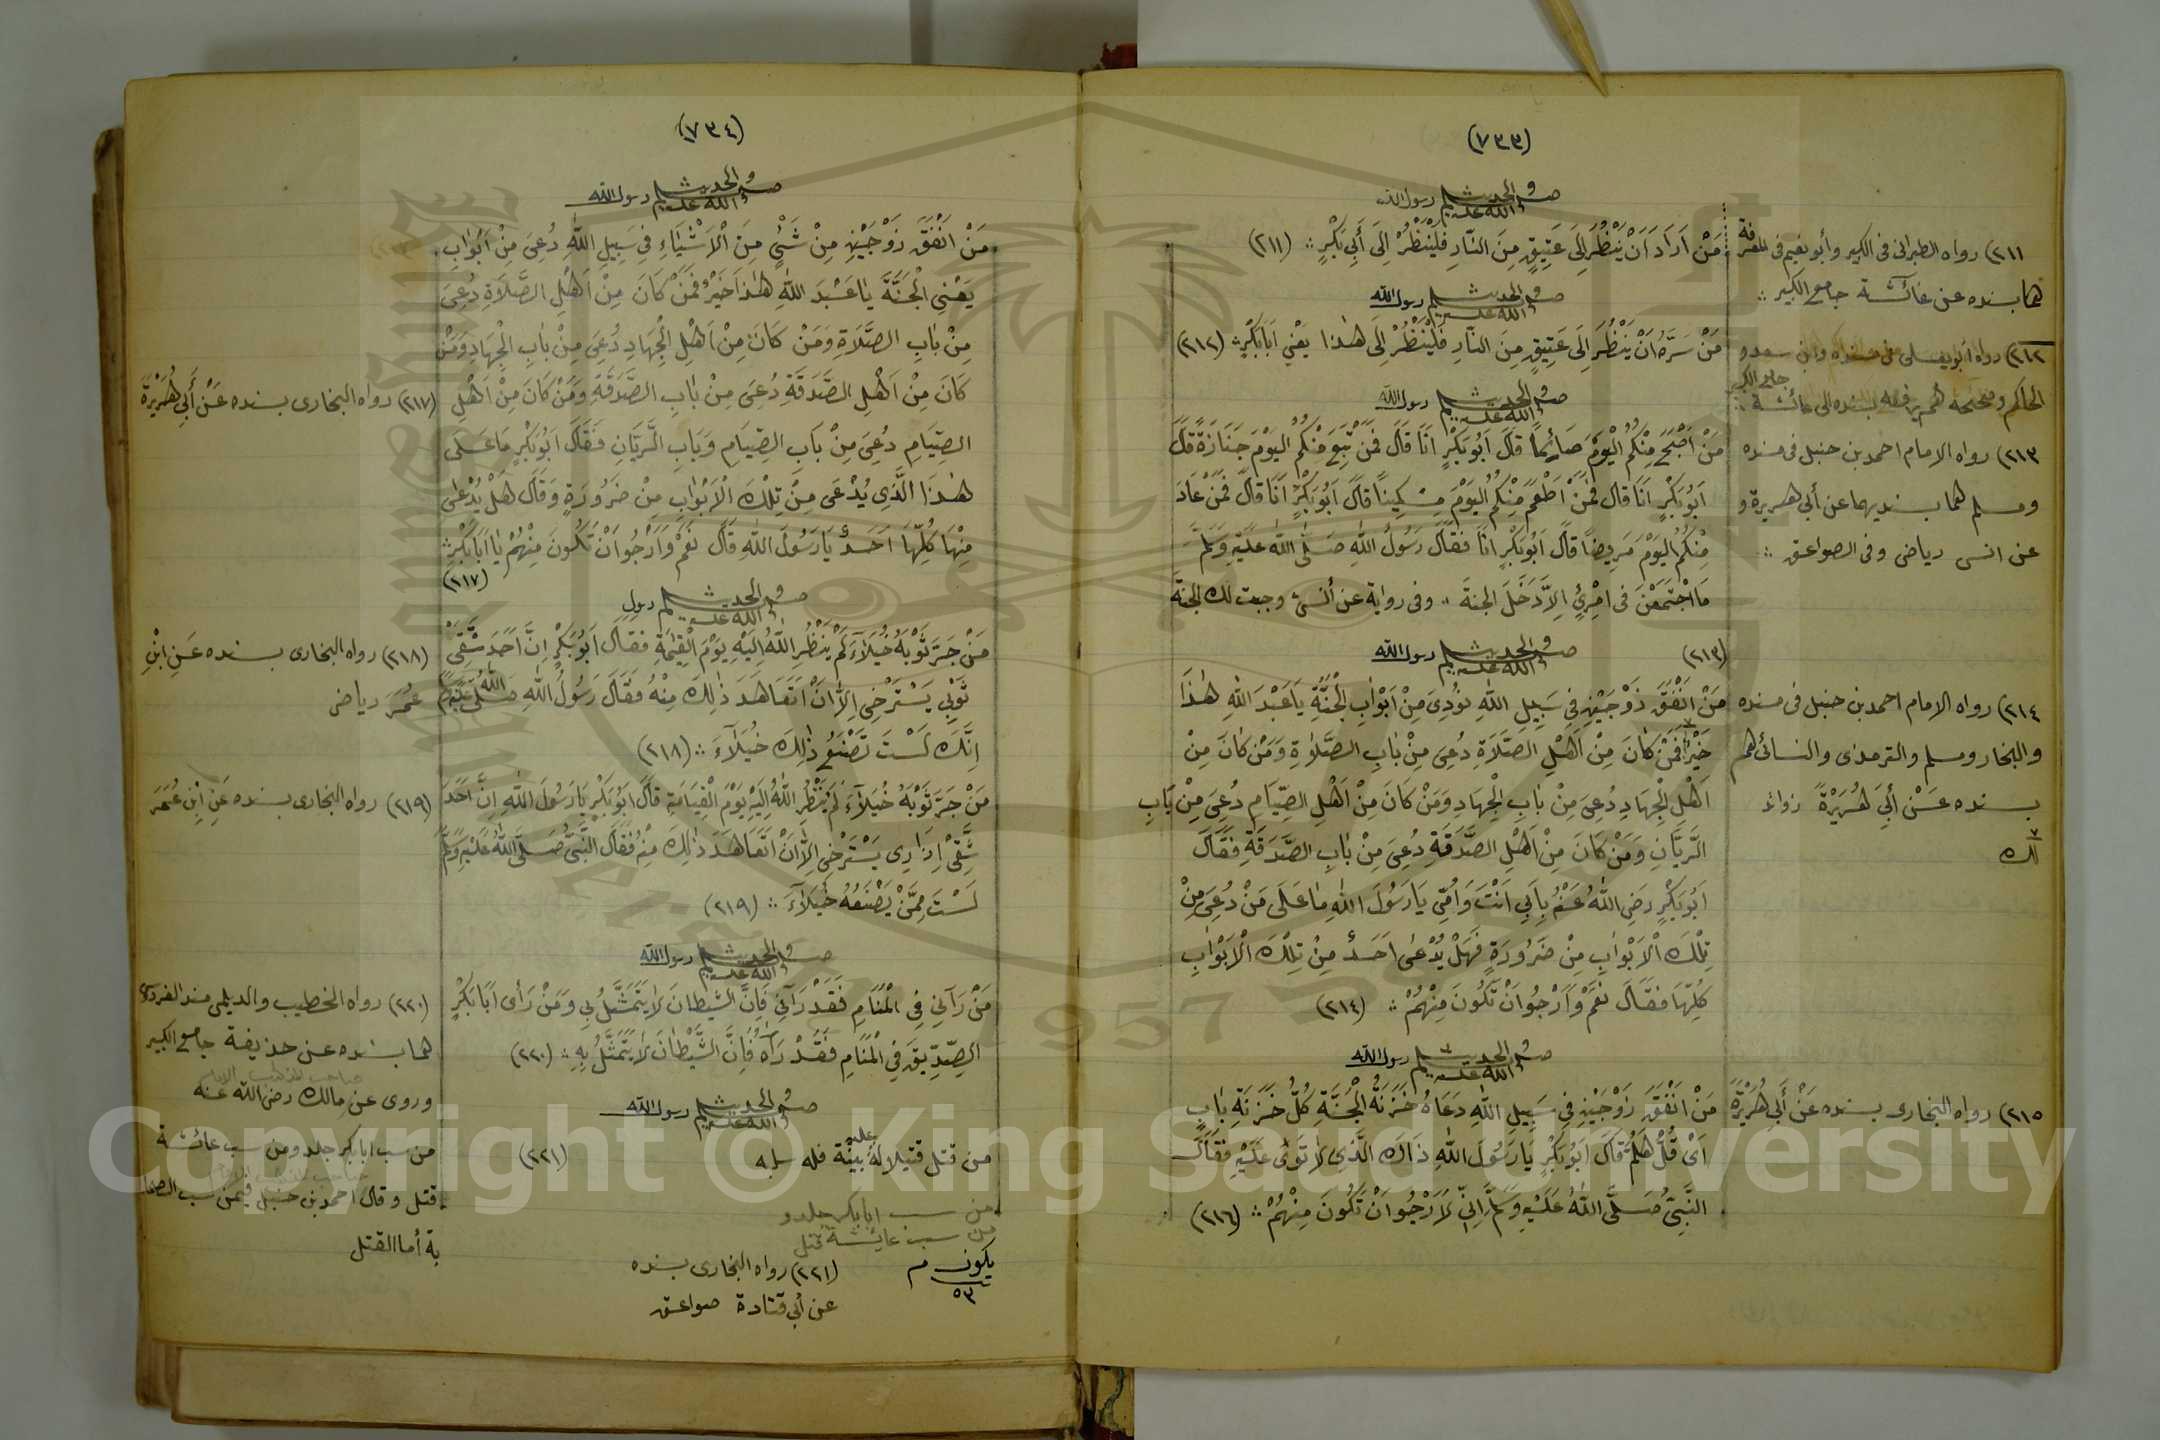 (٧٣٣)
الحديث رسول الله صلى الله عليه وسلم
مَنْ اَرَادَ اَنْ يَنْظُرَ اِلَى عَتِيقٍ مِنَ النَّارِ فَلْيَنْظُرْ اِلَى أَبِي بَكْرٍ (٢١١)
الحديث رسول الله صلى الله عليه وسلم
مَنْ سَرَّهُ اَنْ يَنْظُرَ اِلَى عَتِيقٍ مِنَ النَّارِ فَلْيَنْظُرْ اِلَى هٰذا يَعْنِي اَبَا بَكْرٍ (٢١٢)
الحديث رسول الله صلى الله عليه وسلم
مَنْ اَصْبَحَ مِنْكُمُ الْيَوْمَ صَائِماً قَالَ اَبُو بَكْرٍ اَنَا قَالَ فَمَنْ تَبِعَ مِنْكُمُ اليَوْمَ جَنَازَةً قَالَ
اَبُو بَكْرٍ اَنَا قَالَ فَمَنْ اَطْعَمَ مِنْكُمُ الْيَوْمَ مِسْكِيناً قَالَ اَبُو بَكْرٍ اَنَا قَالَ فَمَنْ عَادَ
مِنْكُمُ الْيَوْمَ مَرِيضاً قَالَ اَبُو بَكْرٍ اَنَا فَقَالَ رَسُولُ اللهِ صَلَّى اللهُ عَلَيْهِ وَسَلَّمَ
مَا اجْتَمَعْنَ فِى امْرِئٍ اِلاَّ دَخَلَ الجنةَ .. وفى رواية عن أنس وجبت لك الجنة
(٢١٣)
الحديث رسول الله صلى الله عليه وسلم
مَنْ اَنْفَقَ زَوْجَيْنِ فِي سَبِيلِ اللهِ نُودِىَ مِنْ اَبْوَابِ الْجَنَّةِ يَا عَبْدَ اللهِ هٰذَا
خَيْرٌ فَمَنْ كَانَ مِنْ اَهْلِ الصَّلَاةِ دُعِىَ مِنْ بَابِ الصَّلٰوةِ وَمَنْ كَانَ مِنْ
اَهْلِ الْجِهَادِ دُعِىَ مِنْ بَابِ الْجِهَادِ وَمَنْ كَانَ مِنْ اَهْلِ الصِّيَامِ دُعِىَ مِنْ بَابِ
الرَّيَّانِ وَمَنْ كَانَ مِنْ اَهْلِ الصَّدَقَةِ دُعِىَ مِنْ بَابِ الصَّدَقَةِ فَقَالَ
اَبُو بَكْرٍ رَضِىَ اللهُ عَنْهُ بِاَبِى اَنْتَ وَاُمِّى يَا رَسُولَ اللهِ مَا عَلَى مَنْ دُعِىَ مِنْ
تِلْكَ الْاَبْوَابِ مِنْ ضَرُورَةٍ فَهَلْ يُدْعٰى اَحَدٌ مِنْ تِلْكَ الْاَبْوَابِ
كُلِّهَا فَقَالَ نَعَمْ وَاَرْجُو اَنْ تَكُونَ مِنْهُمْ (٢١٤)
الحديث رسول الله صلى الله عليه وسلم
مَنْ اَنْفَقَ زَوْجَيْنِ فِى سَبِيلِ اللهِ دَعَاهُ خَزَنَةُ الْجَنَّةِ كُلُّ خَزَنَةِ بَابٍ
اَىْ فُلُ هَلُمَّ قَالَ اَبُو بَكْرٍ يَا رَسُولَ اللهِ ذَاكَ الَّذِى لَا تَوٰى عَلَيْهِ فَقَالَ
النَّبِىُّ صَلَّى اللهُ عَلَيْهِ وَسَلَّمَ اِنِّى لَاَرْجُو اَنْ تَكُونَ مِنْهُمْ (٢١٦)
٢١١) رواه الطبرانى فى الكبير وأبو نعيم فى المعرفة
هما بسنده عن عائشة جامع الكبير
٢١٢) رواه ابو يعلى فى مسنده وابن سعد و
الحاكم وصححه بسنده الى عائشة جامع الكبير
٢١٣) رواه الامام احمد بن حنبل فى مسنده
ومسلم هما بسنديهما عن أبى هريرة و
عن انس رياض وفى الصواعق
٢١٤) رواه الامام احمد بن حنبل فى مسنده
والبخار ومسلم والترمذى والنسائى هم
بسنده عَنْ أَبِى هُرَيْرَةَ
٢١٥) رواه البخارى بسنده عَنْ أَبِى هُرَيْرَةَ
(٧٣٤)
الحديث رسول الله صلى الله عليه وسلم
مَنْ اَنْفَقَ زَوْجَيْنِ مِنْ شَئٍ مِنَ الْاَشْيَاءِ فِى سَبِيلِ اللهِ دُعِىَ مِنْ اَبْوَابِ
يَعْنِى الْجَنَّةَ يَا عَبْدَ اللهِ هٰذَا خَيْرٌ فَمَنْ كَانَ مِنْ اَهْلِ الصَّلَاةِ دُعِىَ
مِنْ بَابِ الصَّلَاةِ وَمَنْ كَانَ مِنْ اَهْلِ الْجِهَادِ دُعِىَ مِنْ بَابِ الْجِهَادِ وَمَنْ
كَانَ مِنْ اَهْلِ الصَّدَقَةِ دُعِىَ مِنْ بَابِ الصَّدَقَةِ وَمَنْ كَانَ مِنْ اَهْلِ
الصِّيَامِ دُعِىَ مِنْ بَابِ الصِّيَامِ وَبَابِ الرَّيَّانِ فَقَالَ اَبُو بَكْرٍ مَا عَلَى
هٰذَا الَّذِى يُدْعَى مِنْ تِلْكَ الْاَبْوَابِ مِنْ ضَرُورَةٍ وَقَالَ هَلْ يُدْعٰى
مِنْهَا كُلِّهَا اَحَدٌ يَا رَسُولَ اللهِ قَالَ نَعَمْ وَاَرْجُو اَنْ تَكُونَ مِنْهُمْ يَا اَبَا بَكْرٍ
(٢١٧)
الحديث رسول الله صلى الله عليه وسلم
مَنْ جَرَّ ثَوْبَهُ خُيَلَاءَ لَمْ يَنْظُرِ اللهُ اِلَيْهِ يَوْمَ الْقِيٰمَةِ فَقَالَ اَبُو بَكْرٍ اِنَّ اَحَدَ شِقَّىْ
ثَوْبِى يَسْتَرْخِى اِلاَّ اَنْ اَتَعَاهَدَ ذٰلِكَ مِنْهُ فَقَالَ رَسُولُ اللهِ صَلَّى اللهُ عَلَيْهِ وَسَلَّمَ
اِنَّكَ لَسْتَ تَصْنَعُ ذٰلِكَ خُيَلَاءَ (٢١٨)
مَنْ جَرَّ ثَوْبَهُ خُيَلَاءَ لَمْ يَنْظُرِ اللهُ اِلَيْهِ يَوْمَ الْقِيَامَةِ قَالَ اَبُو بَكْرٍ يَا رَسُولَ اللهِ اِنَّ اَحَدَ
شِقَّىْ اِزَارِى يَسْتَرْخِى اِلاَّ اَنْ اَتَعَاهَدَ ذٰلِكَ مِنْهُ فَقَالَ النَّبِىُّ صَلَّى اللهُ عَلَيْهِ وَسَلَّمَ
لَسْتَ مِمَّنْ يَصْنَعُهُ خُيَلَاءَ (٢١٩)
الحديث رسول الله صلى الله عليه وسلم
مَنْ رَآنِى فِى الْمَنَامِ فَقَدْ رَآنِى فَاِنَّ الشَّيْطَانَ لَا يَتَمَثَّلُ بِى وَمَنْ رَأَى اَبَا بَكْرٍ
الصِّدِّيقَ فِى الْمَنَامِ فَقَدْ رَآهُ فَاِنَّ الشَّيْطَانَ لَا يَتَمَثَّلُ بِهِ (٢٢٠)
الحديث رسول الله صلى الله عليه وسلم
من قتل قتيلا له عليه بينة فله سلبه (٢٢١)
من سب ابا بكر جلد و
من سب عائشة قتل
يكون م
٥٣
(٢٢١) رواه البخارى بسنده
عن أبى قتادة صواعق
(٢١٧) رواه البخارى بسنده عَنْ أَبِى هُرَيْرَةَ
(٢١٨) رواه البخارى بسنده عَنِ ابْنِ
عُمَرَ رياض
(٢١٩) رواه البخارى بسنده عَنِ ابْنِ عُمَرَ
(٢٢٠) رواه الخطيب والديلمى مسند الفردوس
هما بسنده عن حذيفة جامع الكبير
وروى عن مالك رضى الله عنه
من سب ابا بكر جلد ومن سب عائشة
قتل وقال احمد بن حنبل فيمن سب الصحا
بة أما القتل
Copyright © King Saud University
1957